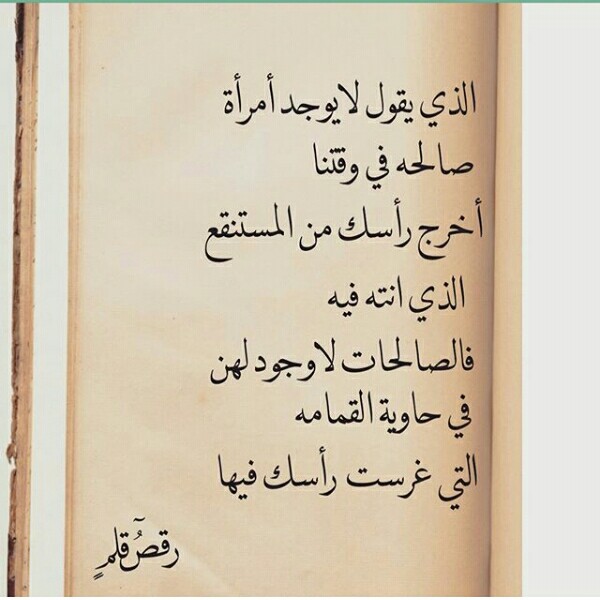 الذي يقول لايوجد أمرأة
صالحه في وقتنا
أخرج رأسك من المستنقع
الذي انته فيه
فالصالحات لاوجود لهن
في حاوية القمامه
التي غرست رأسك فيها
رقصُ قلمٍ